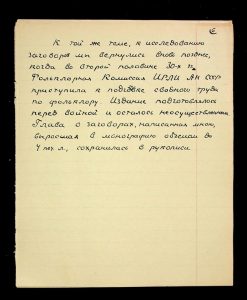 6
К той же теме, к исследованию
заговора мы вернулись вновь позднее,
когда во второй половине 30-х гг.
Фольклорная Комиссия ИРЛИ АН СССР
приступила к подготовке сводного труда
по фольклору. Издание подготовлялось
перед войной и осталось неосуществленным.
Глава о заговорах, написанная мною,
выросшая в монографию объемом до
4 печ. л., сохранилась в рукописи.